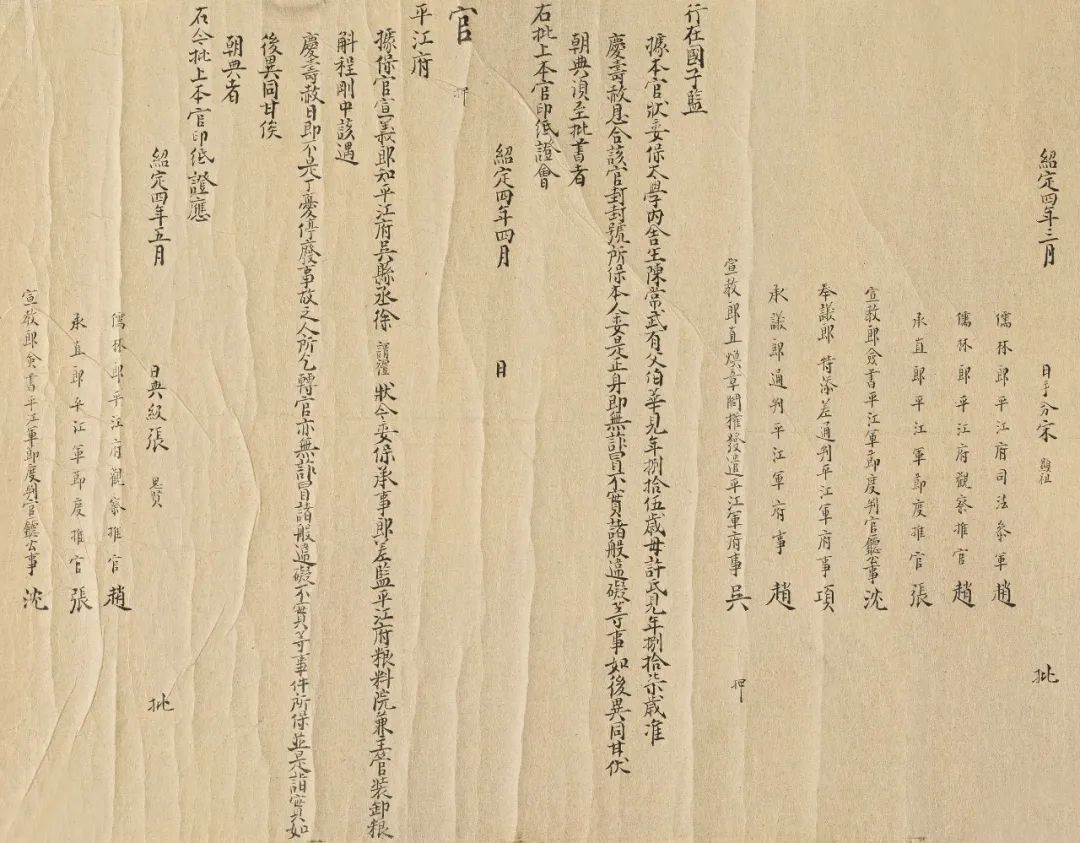 紹定四年三月 日手分宋 顯祖 批
儒林郎平江府司法參軍趙
儒林郎平江府觀察推官趙
承直郎平江軍節度推官張
宣教郎僉書平江軍節度判官廳公事沈
奉議郎特添差通判平江軍府事項
承議郎通判平江軍府事趙
宣教郎直煥章閣權發遣平江軍府事吳 押
行在國子監
據本官狀委保太學內舍生陳常武有父伯華見年捌拾伍歲母許氏見年捌拾柒歲准
慶壽赦恩合該官封封號所保本人委是正身即無詐冒不實諸般違礙等事如後異同甘伏
朝典須至批書者
右批上本官印紙證會
紹定四年四月 日
官 押
平江府
據保官宣義郎知平江府吳縣丞徐 謂禮 狀今委保承事郎差監平江府粮料院兼主管裝卸粮
斛程剛中該遇
慶壽赦日即不是丁憂停廢事故之人所乞轉官亦無詐冒諸般違礙不實等事件所保並是詣實如
後異同甘俟
朝典者
右今批上本官印紙證應
紹定四年五月 日典級張 思賢 批
儒林郎平江府觀察推官趙
承直郎平江軍節度推官張
宣教郎僉書平江軍節度判官廳公事沈